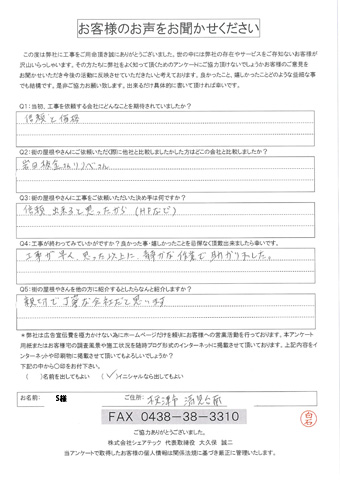 お客様のお声をお聞かせください
この度は弊社に工事をご用命頂き誠にありがとうございました。世の中には弊社の存在やサービスをご存知ないお客様が
沢山いらっしゃいます。その方たちに弊社をよく知って頂くためのアンケートにご協力頂けないでしょうかお客様のご意見を
お聞かせいただき今後の活動に反映させていただきたいと考えております。良かったこと、嬉しかったことどのような些細な事
でも結構です。是非ご協力お願い致します。出来るだけ具体的に書いて頂ければ幸いです。
Q1:当初、工事を依頼する会社にどんなことを期待されていましたか？
信頼と価格
Q2:街の屋根やさんにご依頼いただく際に他社と比較しましたかした方はどこの会社と比較しましたか？
Q3:街の屋根やさんに工事をご依頼いただいた決め手は何ですか？
信頼出来ると思ったから（HPなど）
Q4:工事が終わってみていかがですか？良かった事・嬉しかったことを忌憚なく頂戴出来ましたら幸いです。
工事が早く、思った以上に、静かな作業で助かりました。
Q5:街の屋根やさんを他の方に紹介するとしたらなんと紹介しますか？
親切で丁寧な会社だと思います
＊弊社は広告宣伝費を極力かけない為にホームページだけを頼りにお客様への営業活動を行っております。本アンケート
用紙またはお客様宅の調査風景や施工状況を随時ブログ形式式のインターネットに掲載させて頂いております。上記内容をイ
ンターネットや印刷物に掲載させて頂いてもよろしいでしょうか？
下記の中から〇印をお付け下さい。
（　）名前を出してもよい　（✓）イニシャルなら出してもよい
お名前: S様 ご住所: 木更津市 清見台南
FAX 0438-38-3310
白石
ご協力ありがとうございました。
株式会社シェアテック 代表取締役 大久保 誠二
当アンケートで取得したお客様の個人情報は関係法規に基づき厳正に管理いたします。